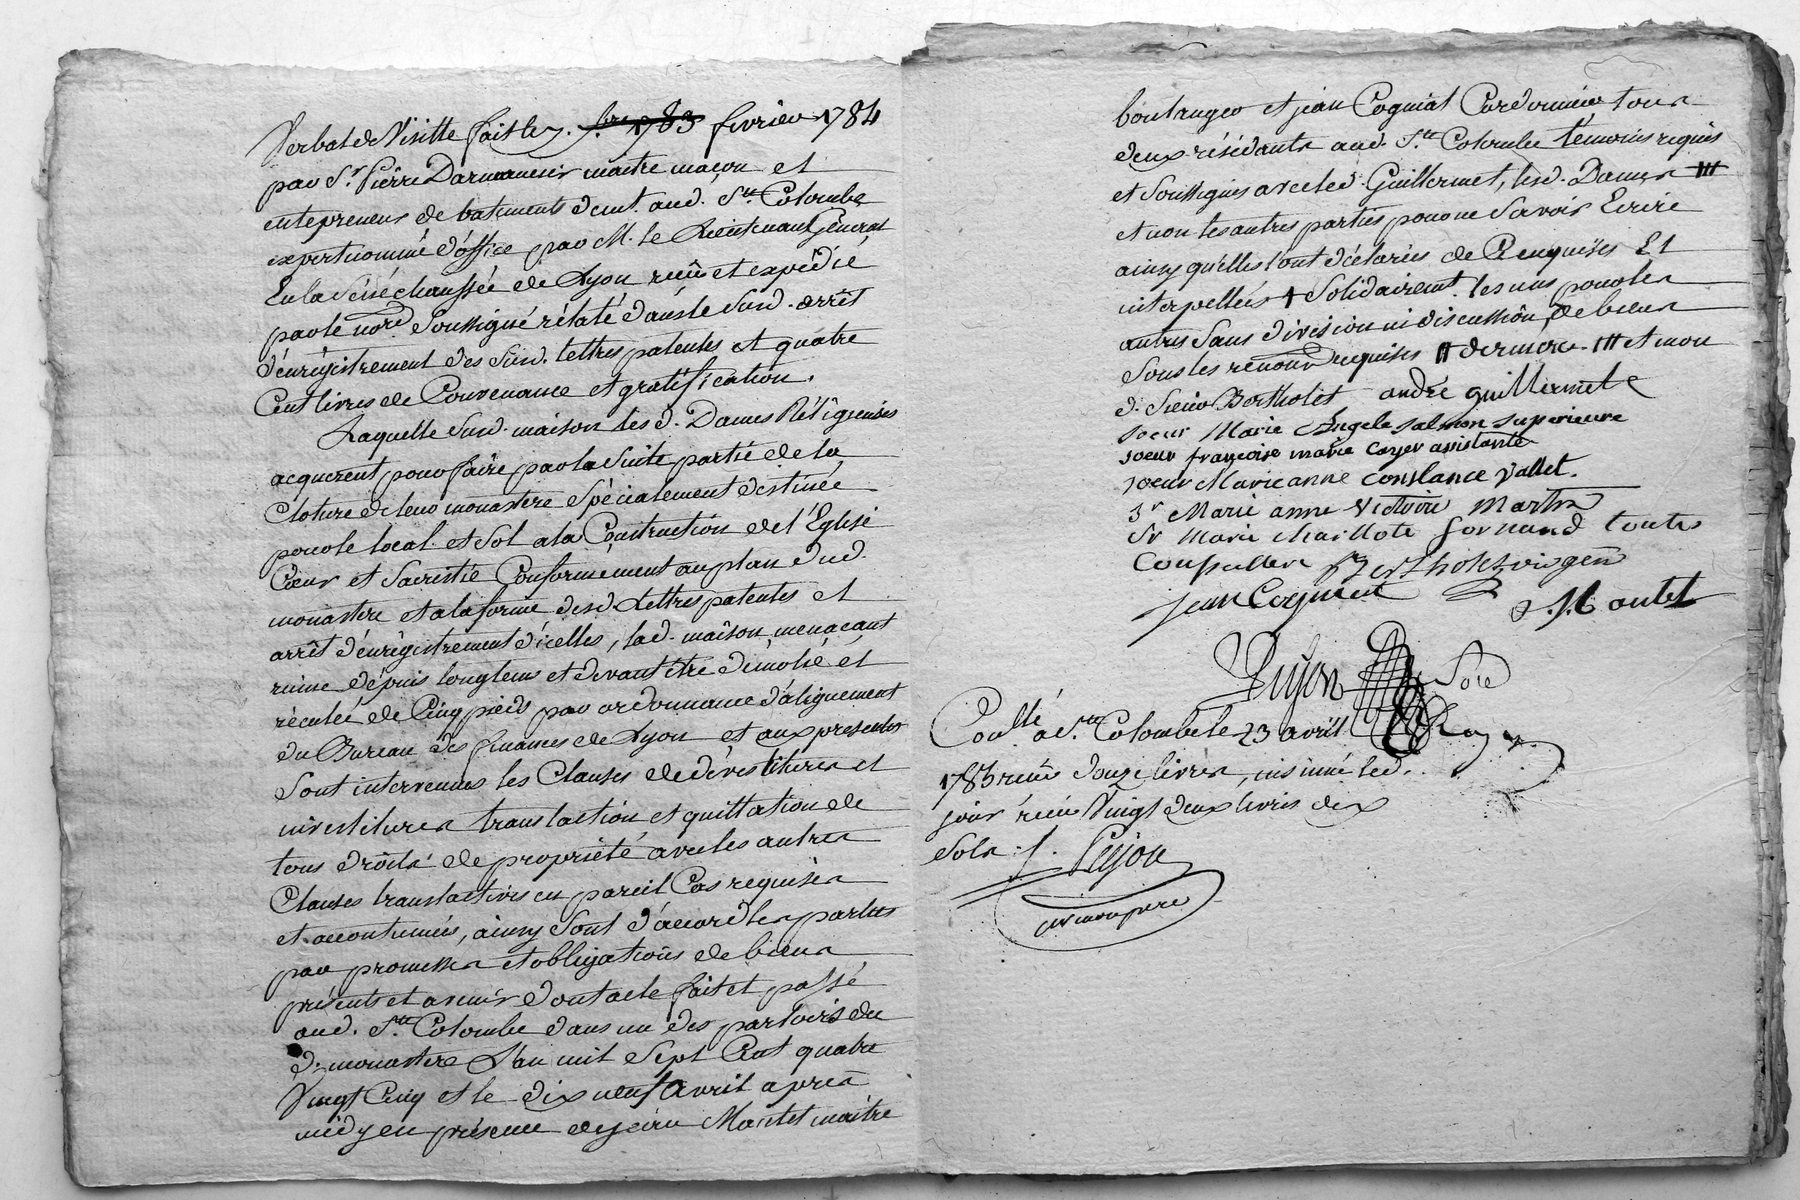 Verbal de Visitte fait le 7. 7bre 1783 fevrier 1784
par Sr. Pierre Darmancier maitre maçon et
entrepreneur de batiments demt. aud. Ste Colombe
expert nommé d'office par M. le Lieutenant Général
En la Sénéchaussée de Lyon reçu et expédié
par le nore Soussigné rélaté dans le Susd. arrêt
d'énrégistrement des Susd. lettres patentes et quatre
Cent livres de Convenance et gratification.
Laquelle Susd. maison les d. Dames Réligieuses
acquerent pour faire par la Suite partie de la
Cloture de leur monastere Spécialement destinée
pour le local et Sol a la Construction de l'Eglise
Cœur et Sacristie Conformement au plan dud.
monastere et a la forme desd. Lettres patentes et
arrêt d'énrégistrement d'icelles, lad. maison menaçant
ruine dépuis longtems et devant être démolie et
réculée de Cinq pieds par ordonnance d'alignement
du Bureau des finances de Lyon et aux presentes
Sont intervenues les Clauses de dévestitures et
investitures translation et quittation de
tous droits de propriété avec les autres
Clauses translatives en pareil Cas requises
et accoutumées, ainsy Sont d'accord les parties
par promesses et obligations de biens
présents et avenir dont acte fait et passé
aud. Ste Colombe dans un des parloirs du
d. monastere L'an mil Sept Cent quatre
Vingt Cinq et le dix neuf avril après
midy en présence de jean Montet maitre
boulanger et jean Cogniat Cordonnier tous
deux résidants aud. Ste Colombe témoins requis
et Soussignés avec led. Guillermet, lesd. Dames III
et non les autres parties pour ne Savoir Ecrire
ainsy qu'elles l'ont déclaré de Ce enquises Et
interpellées † Solidairemt. les uns pour les
autres Sans division ni discussion, de biens
Sous les renonons requises II dernière III et mon
d. Sieur Bertholet andré guillermet
soeur Marie Angele Salmon superieure
soeur françoise marie Coyer assistante
soeur Marieanne Constance Vallet.
Sr Marie anne Victoire Martin
Sr Marie Charllote Gornand toutes
Conseillere Bertholet
jean Cogniat J. Montet
Dujon
Conllé a Ste Colombe le 23 avril
1785 reçu douze livres, insinué led.
jour réçu Vingt deux livres dix
Sols ./. Dujon